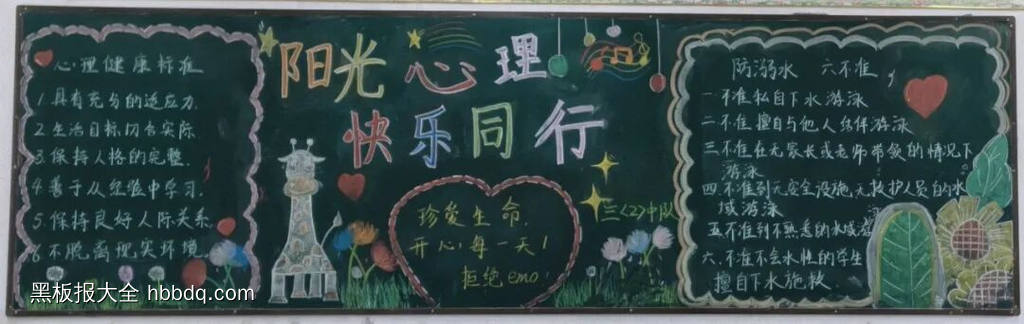 心理健康标准
1.具有充分的适应力.
2.生活目标切合实际.
3.保持人格的完整.
4.善于从经验中学习.
5.保持良好人际关系
6.不脱离现实环境
阳光心理
快乐同行
三(2)中队
珍爱生命.
开心每一天!
拒绝emo!
防溺水 六不准
一.不准私自下水游泳
二.不准擅自与他人结伴游泳
三.不准在无家长或老师带领的情况下
游泳
四.不准到无安全设施,无救护人员的水
域游泳
五.不准到不熟悉的水域游
泳
六.不准不会水性的学生
擅自下水施救.
黑板报大全 hbbdq.com